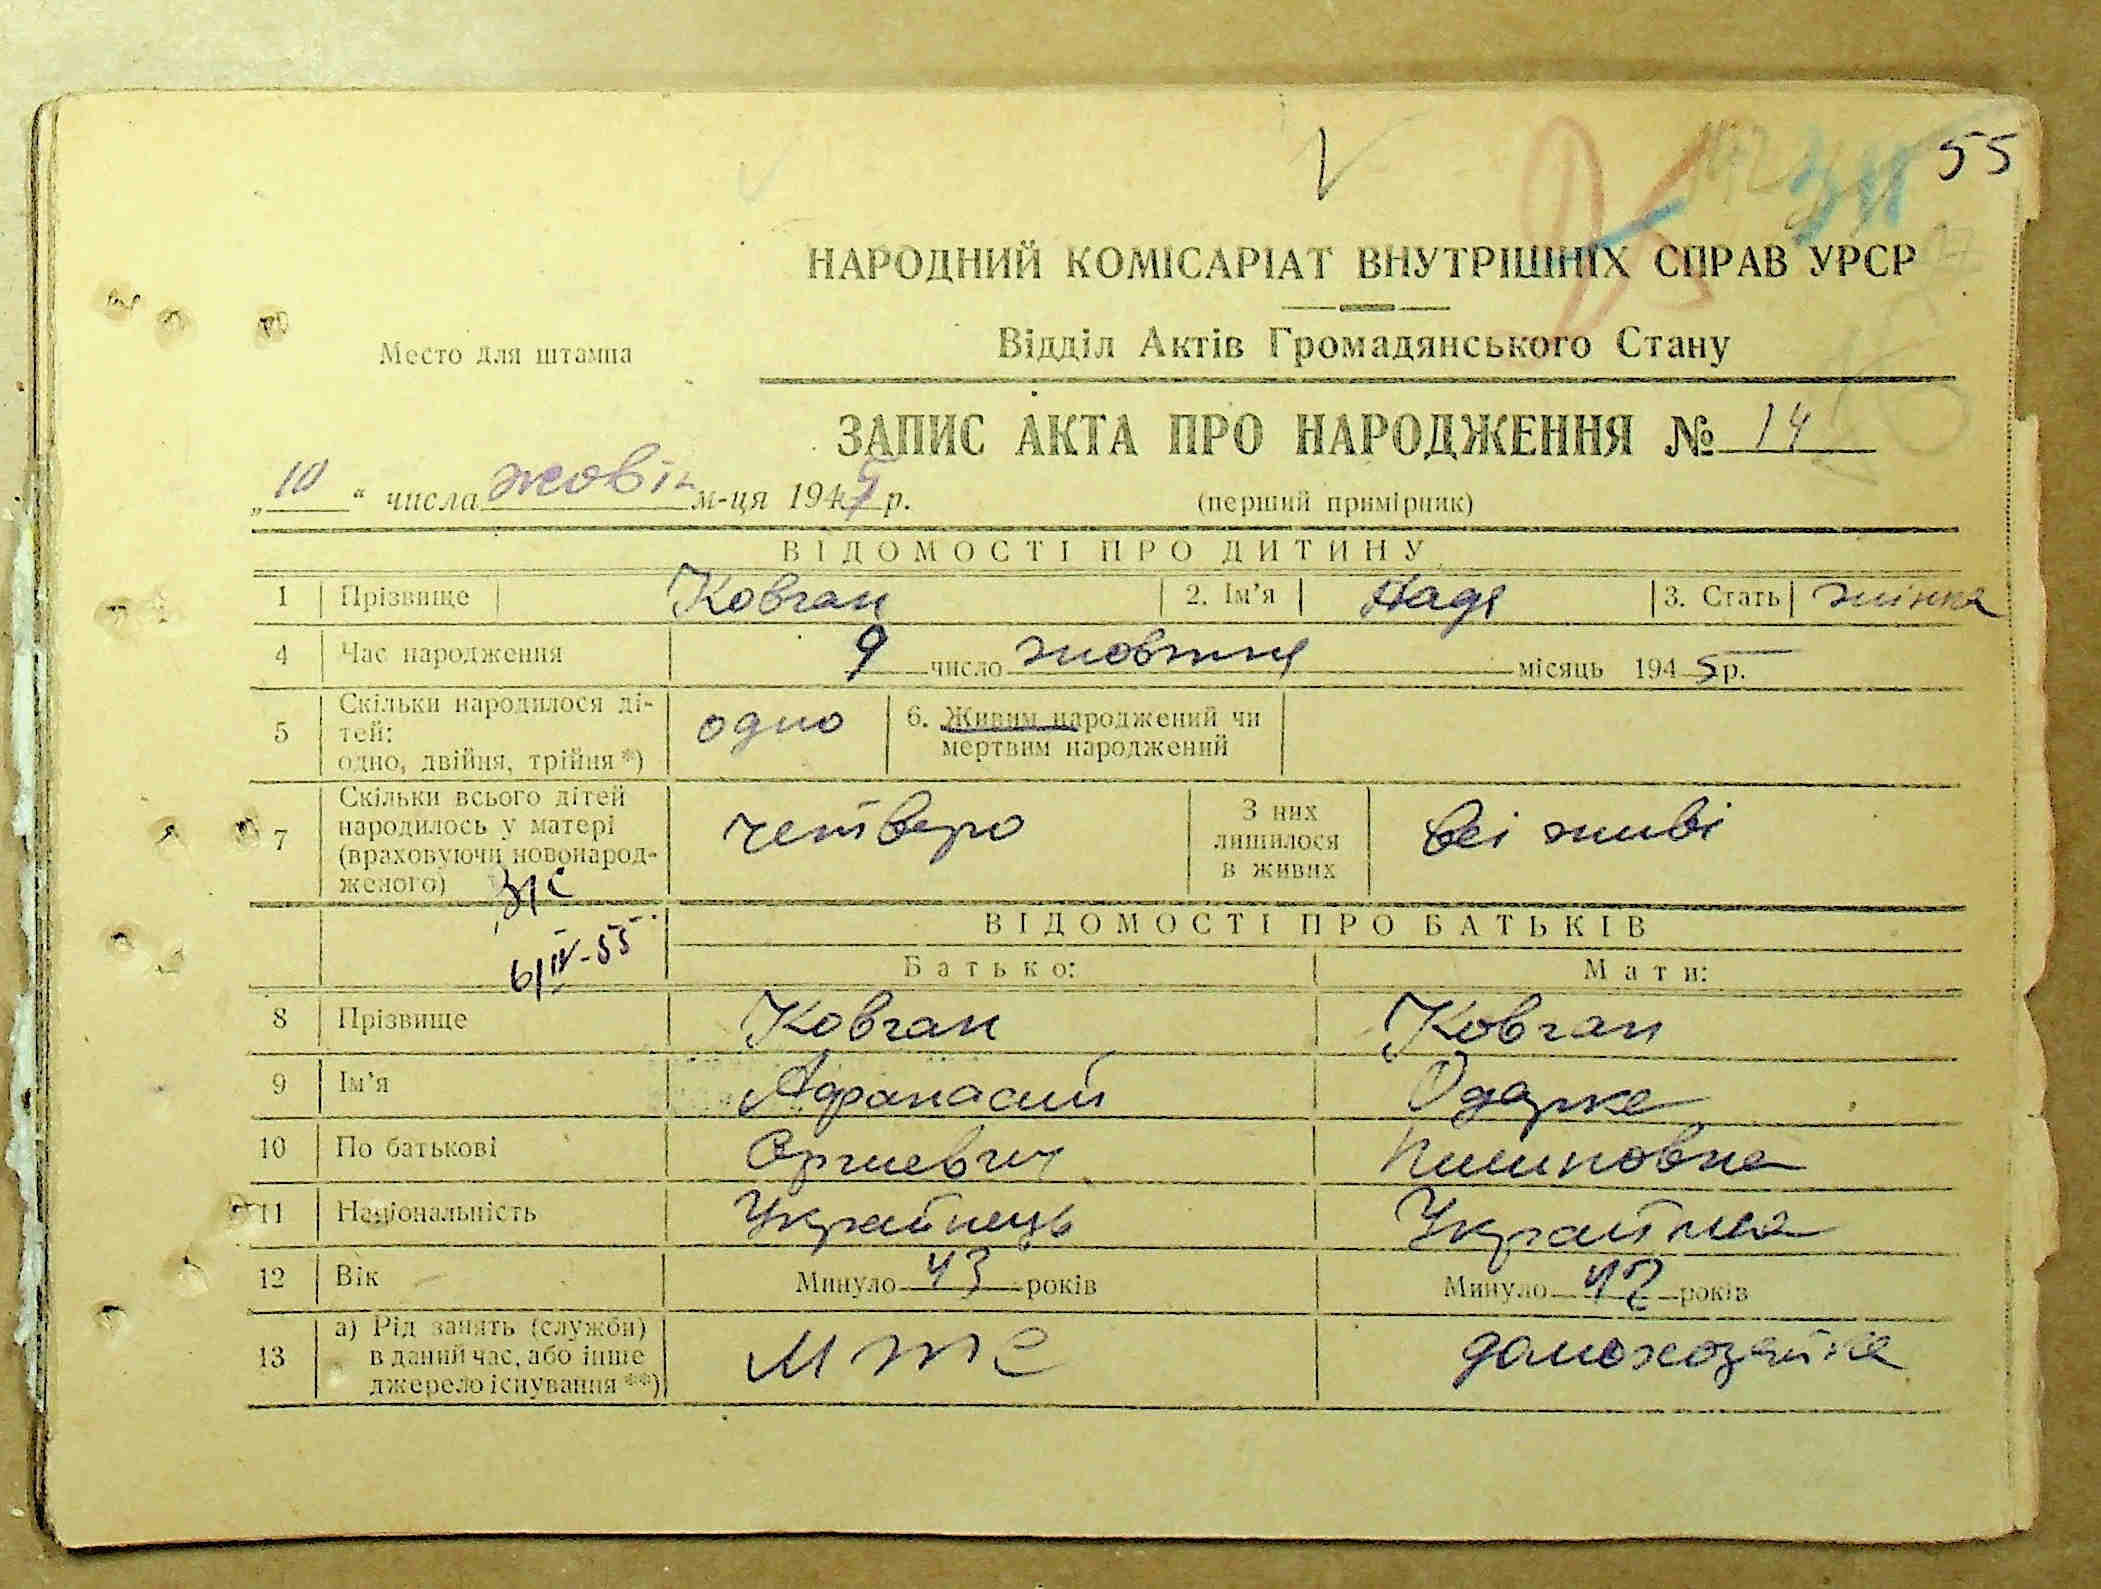 55
НАРОДНИЙ КОМІСАРІАТ ВНУТРІШНІХ СПРАВ УРСР
Место для штампа
Відділ Актів Громадянського Стану
ЗАПИС АКТА ПРО НАРОДЖЕННЯ № 14
„10“ числа жовтн м-ця 1945 р.
(перший примірник)
ВІДОМОСТІ ПРО ДИТИНУ
1 Прізвище Ковган 2. Ім'я Надя 3. Стать жінка
4 Час народження 9 число жовтня місяць 1945 р.
5 Скільки народилося ді-
тей:
одно, двійня, трійня *) одно 6. Живим народжений чи
мертвим народжений
7 Скільки всього дітей
народилось у матері
(враховуючи новонарод-
женого) четверо З них
лишилося
в живих всі живі
6/IV-55
ВІДОМОСТІ ПРО БАТЬКІВ
Батько: Мати:
8 Прізвище Ковган Ковган
9 Ім'я Афанасий Одарка
10 По батькові Пилиповна
11 Національність Українець Українка
12 Вік Минуло 43 років Минуло 42 років
13 а) Рід занять (служби)
в даний час, або інше
джерело існування **) МТС домохозяйка